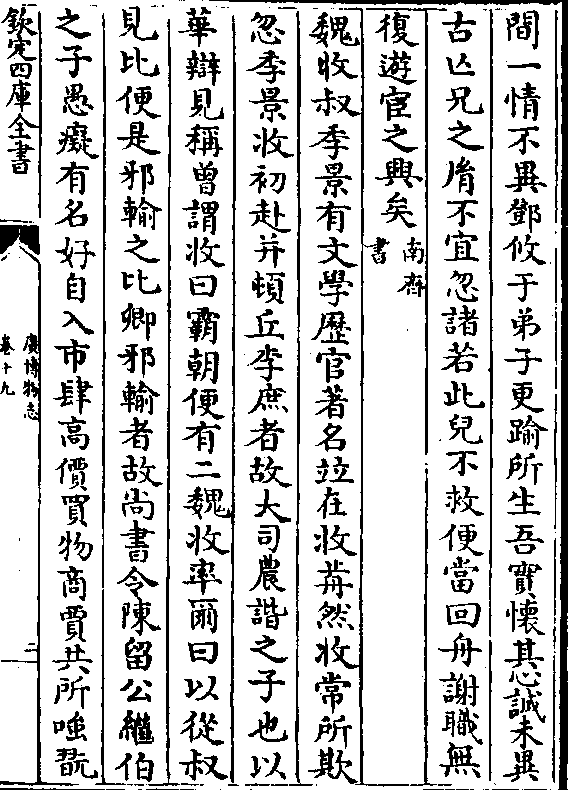 間一情不異鄧攸于弟子更踰所生吾實懷其心誠未異
古亾兄之𦙍不宜忽諸若此兒不救便當回舟謝職無
復遊宦之興矣南齊書
魏收叔季景有文學歴官著名竝在收前然收常所欺
忽季景收初赴并頓丘李庶者故大司農諧之子也以
華辯見稱曽謂收曰霸朝便有二魏收率爾曰以從叔
見比便是邪輸之比卿邪輸者故尚書令陳留公繼伯
之子愚癡有名好自入市肆高價買物商賈共所嗤翫
欽定四庫全書
廣博物志
卷十九
二